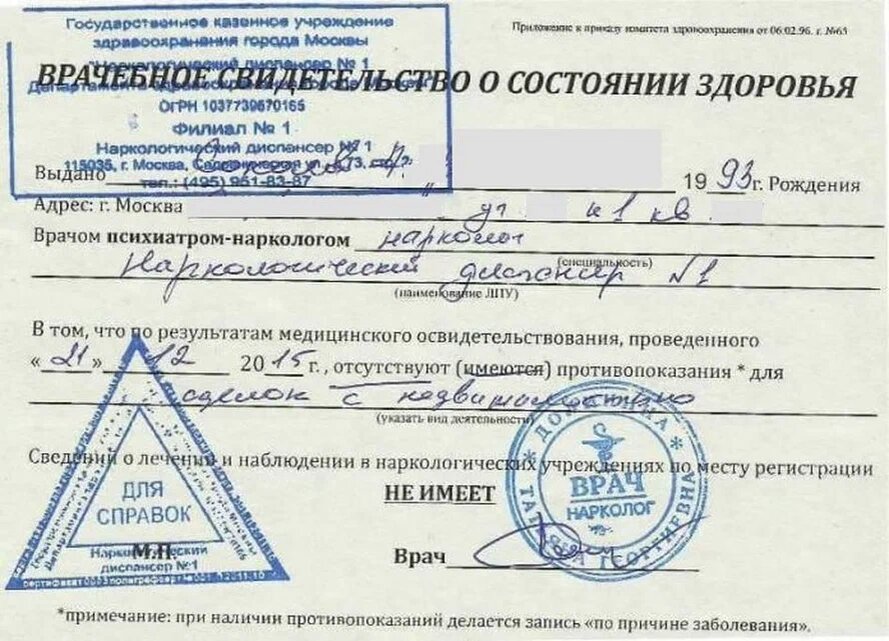 Государственное казенное учреждение
здравоохранения города Москвы
"Наркологический диспансер № 1
Департамента здравоохранения города Москвы"
ОГРН 1037739670165
Филиал № 1
Наркологический диспансер № 1
115035, г. Москва, ул., 73, стр.
тел.: (495) 951-83-87
Приложение к приказу комитета здравоохранения от 06.02.96. г. №65
ВРАЧЕБНОЕ СВИДЕТЕЛЬСТВО О СОСТОЯНИИ ЗДОРОВЬЯ
Выдано 1993 г. Рождения
Адрес: г. Москва к1 кв
Врачом психиатром-наркологом нарколог
(специальность)
Наркологический диспансер №1
(наименование ЛПУ)
В том, что по результатам медицинского освидетельствования, проведенного
«21» 12 2015 г., отсутствуют (имеются) противопоказания * для
сделок с недвижимостью
(указать вид деятельности)
Сведений о лечении и наблюдении в наркологических учреждениях по месту регистрации
НЕ ИМЕЕТ
М.П.
Врач
ДЛЯ
СПРАВОК
Наркологический
диспансер №1
ВРАЧ
НАРКОЛОГ
ТАТЬЯНА ГЕОРГИЕВНА
*примечание: при наличии противопоказаний делается запись «по причине заболевания».